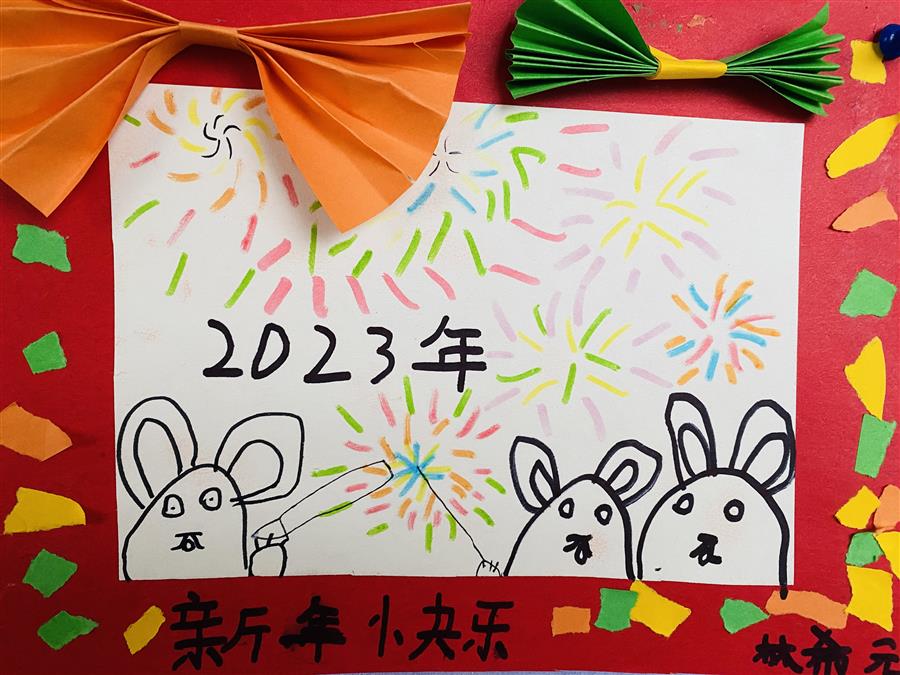 2023年
新年快乐
林希元